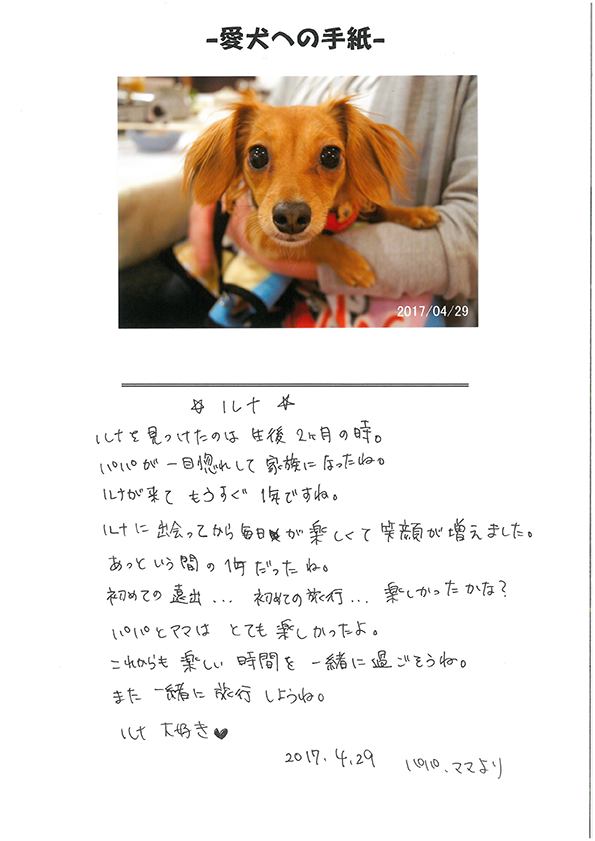 -愛犬への手紙-
2017/04/29
☆ ルナ ☆
ルナを見つけたのは 生後 2ヶ月の時。
パパが 一目惚れして 家族になったね。
ルナが来て もうすぐ 1年ですね。
ルナに 出会ってから 毎日が 楽しくて 笑顔が増えました。
あっという間の 1年だったね。
初めての 遠出... 初めての旅行... 楽しかったかな?
パパとママは とても 楽しかったよ。
これからも 楽しい 時間を 一緒に 過ごそうね。
また 一緒に 旅行 しようね。
ルナ 大好き♥
2017.4.29 パパ、ママより